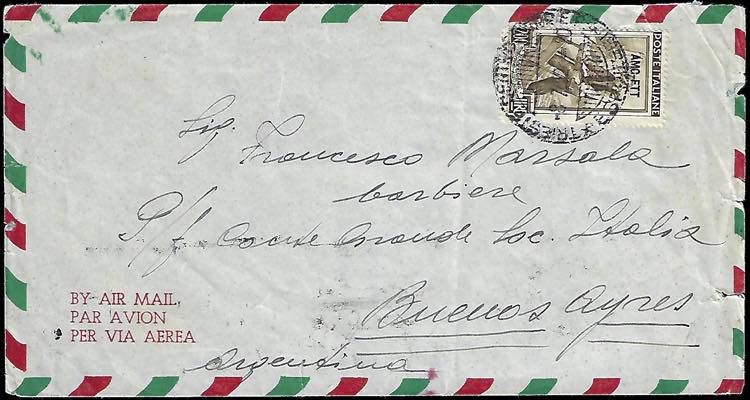 POSTE ITALIANE
AMG-FTT
200
Sig.
Francesco Marsala
barbiere
P/f Conte Grande Soc. Italia
Buenos Ayres
Argentina
BY AIR MAIL
PAR AVION
PER VIA AEREA